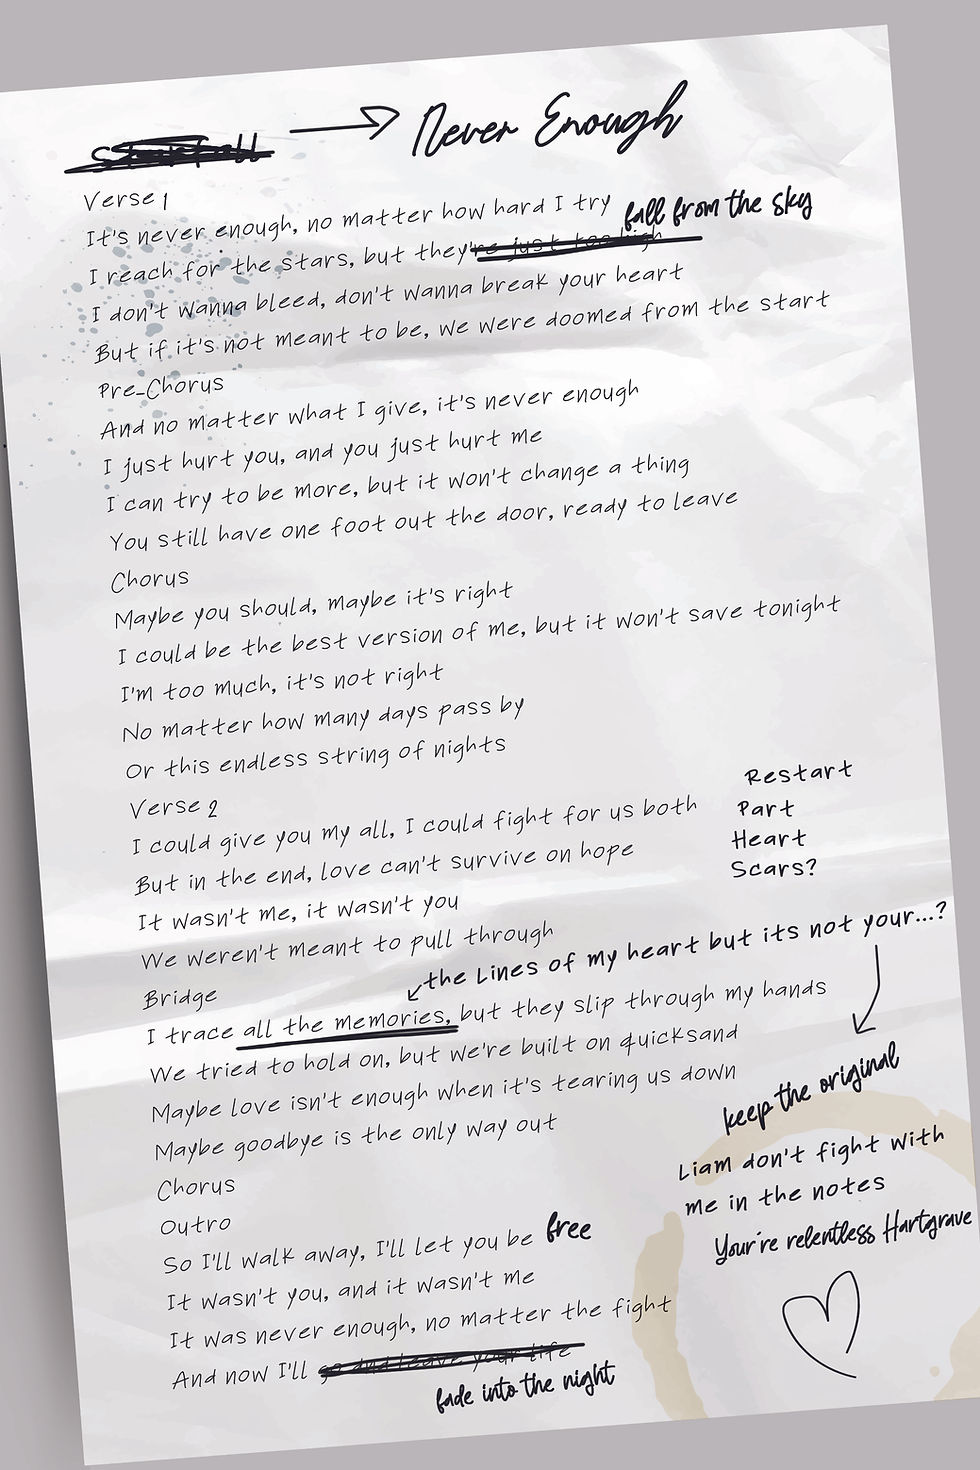 Starfall → Never Enough
Verse 1
It's never enough, no matter how hard I try
fall from the sky
I reach for the stars, but they're just too high
I don't wanna bleed, don't wanna break your heart
But if it's not meant to be, we were doomed from the start
Pre-Chorus
And no matter what I give, it's never enough
I just hurt you, and you just hurt me
I can try to be more, but it won't change a thing
You still have one foot out the door, ready to leave
Chorus
Maybe you should, maybe it's right
I could be the best version of me, but it won't save tonight
I'm too much, it's not right
No matter how many days pass by
Or this endless string of nights
Verse 2
I could give you my all, I could fight for us both
But in the end, love can't survive on hope
It wasn't me, it wasn't you
We weren't meant to pull through
Restart
Part
Heart
Scars?
Bridge
the Lines of my heart but its not your...?
I trace all the memories, but they slip through my hands
We tried to hold on, but we're built on quicksand
Maybe love isn't enough when it's tearing us down
Maybe goodbye is the only way out
keep the original
Liam don't fight with
me in the notes
Your're relentless Hartgrave
Chorus
Outro
So I'll walk away, I'll let you be free
It wasn't you, and it wasn't me
It was never enough, no matter the fight
And now I'll go and leave your life
fade into the night